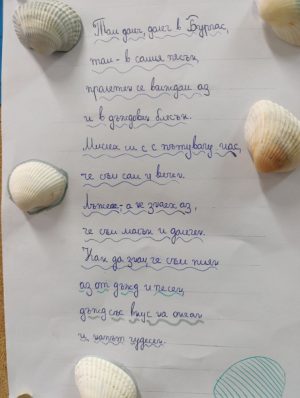 Там далеч, далеч в Бургас,
там - в самия пясък,
пролетен се виждам аз
и в дъждовен блясък.
Мислех си с пътуващ глас,
че съм сам и вечен.
Лъжех, а не знаех аз,
че съм малък и далечен.
Как да зная, че съм пиян
аз от дъжд и песен,
дъжд със вкус на океан
и пътят чудесен.